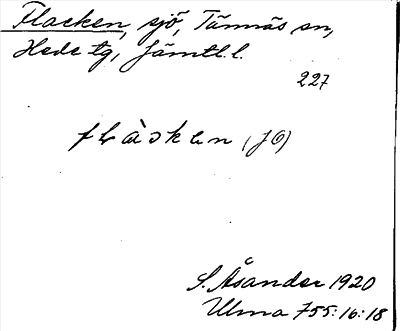 Flacken, sjö, Tännäs sn,
Hede tg, Jämtl. l.
227
flàskən (JO)
S. Åsander 1920
Ulma 755:16:18